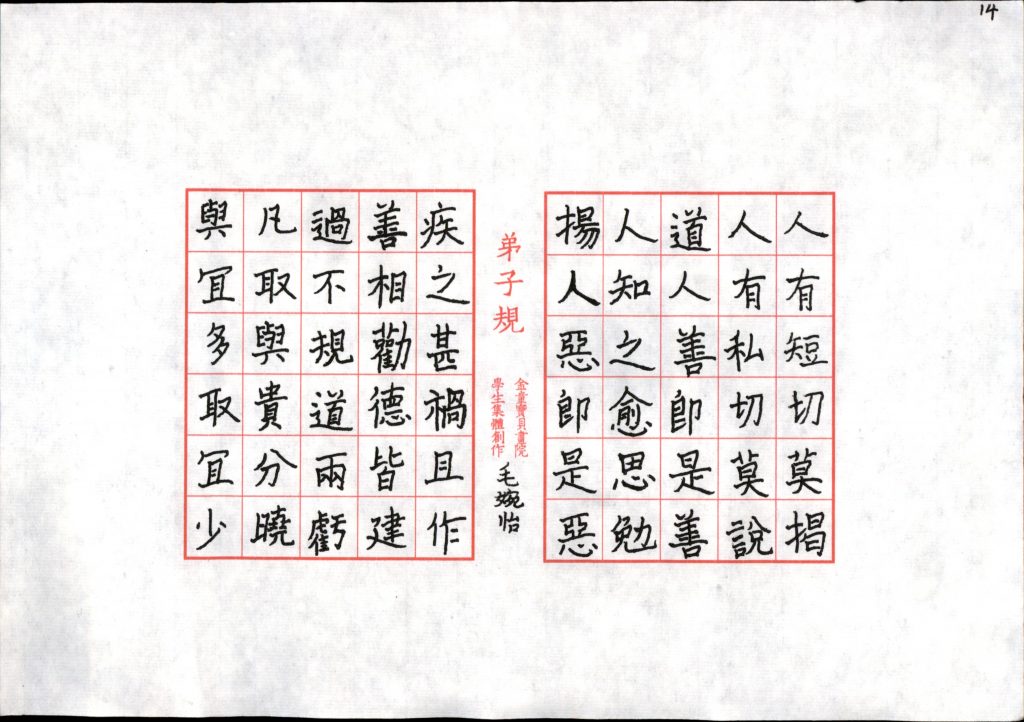 14
人有短切莫揭
人有私切莫說
道人善即是善
人知之愈思勉
揚人惡即是惡
弟子規
金童寶貝畫院
學生集體創作
毛婉怡
疾之甚禍且作
善相勸德皆建
過不規道兩虧
凡取與貴分曉
與宜多取宜少